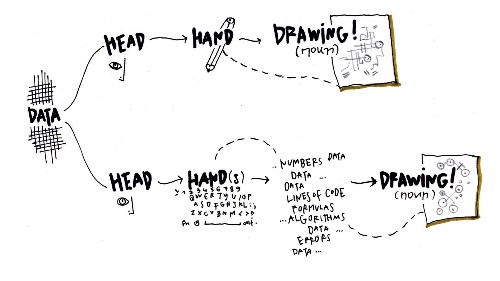 DATA
HEAD
HAND
DRAWING!
(noun)
HEAD
HAND(s)
1 2 3 4 5 6 7 8 9
Q W E R T Y U I O P
A S D F G H J K L
Z X C V B N M < > 
Fn
... NUMBERS DATA
DATA ...
DATA
LINES OF CODE
FORMULAS
... ALGORITHMS
DATA ...
ERRORS
DATA ...
DRAWING!
(noun)